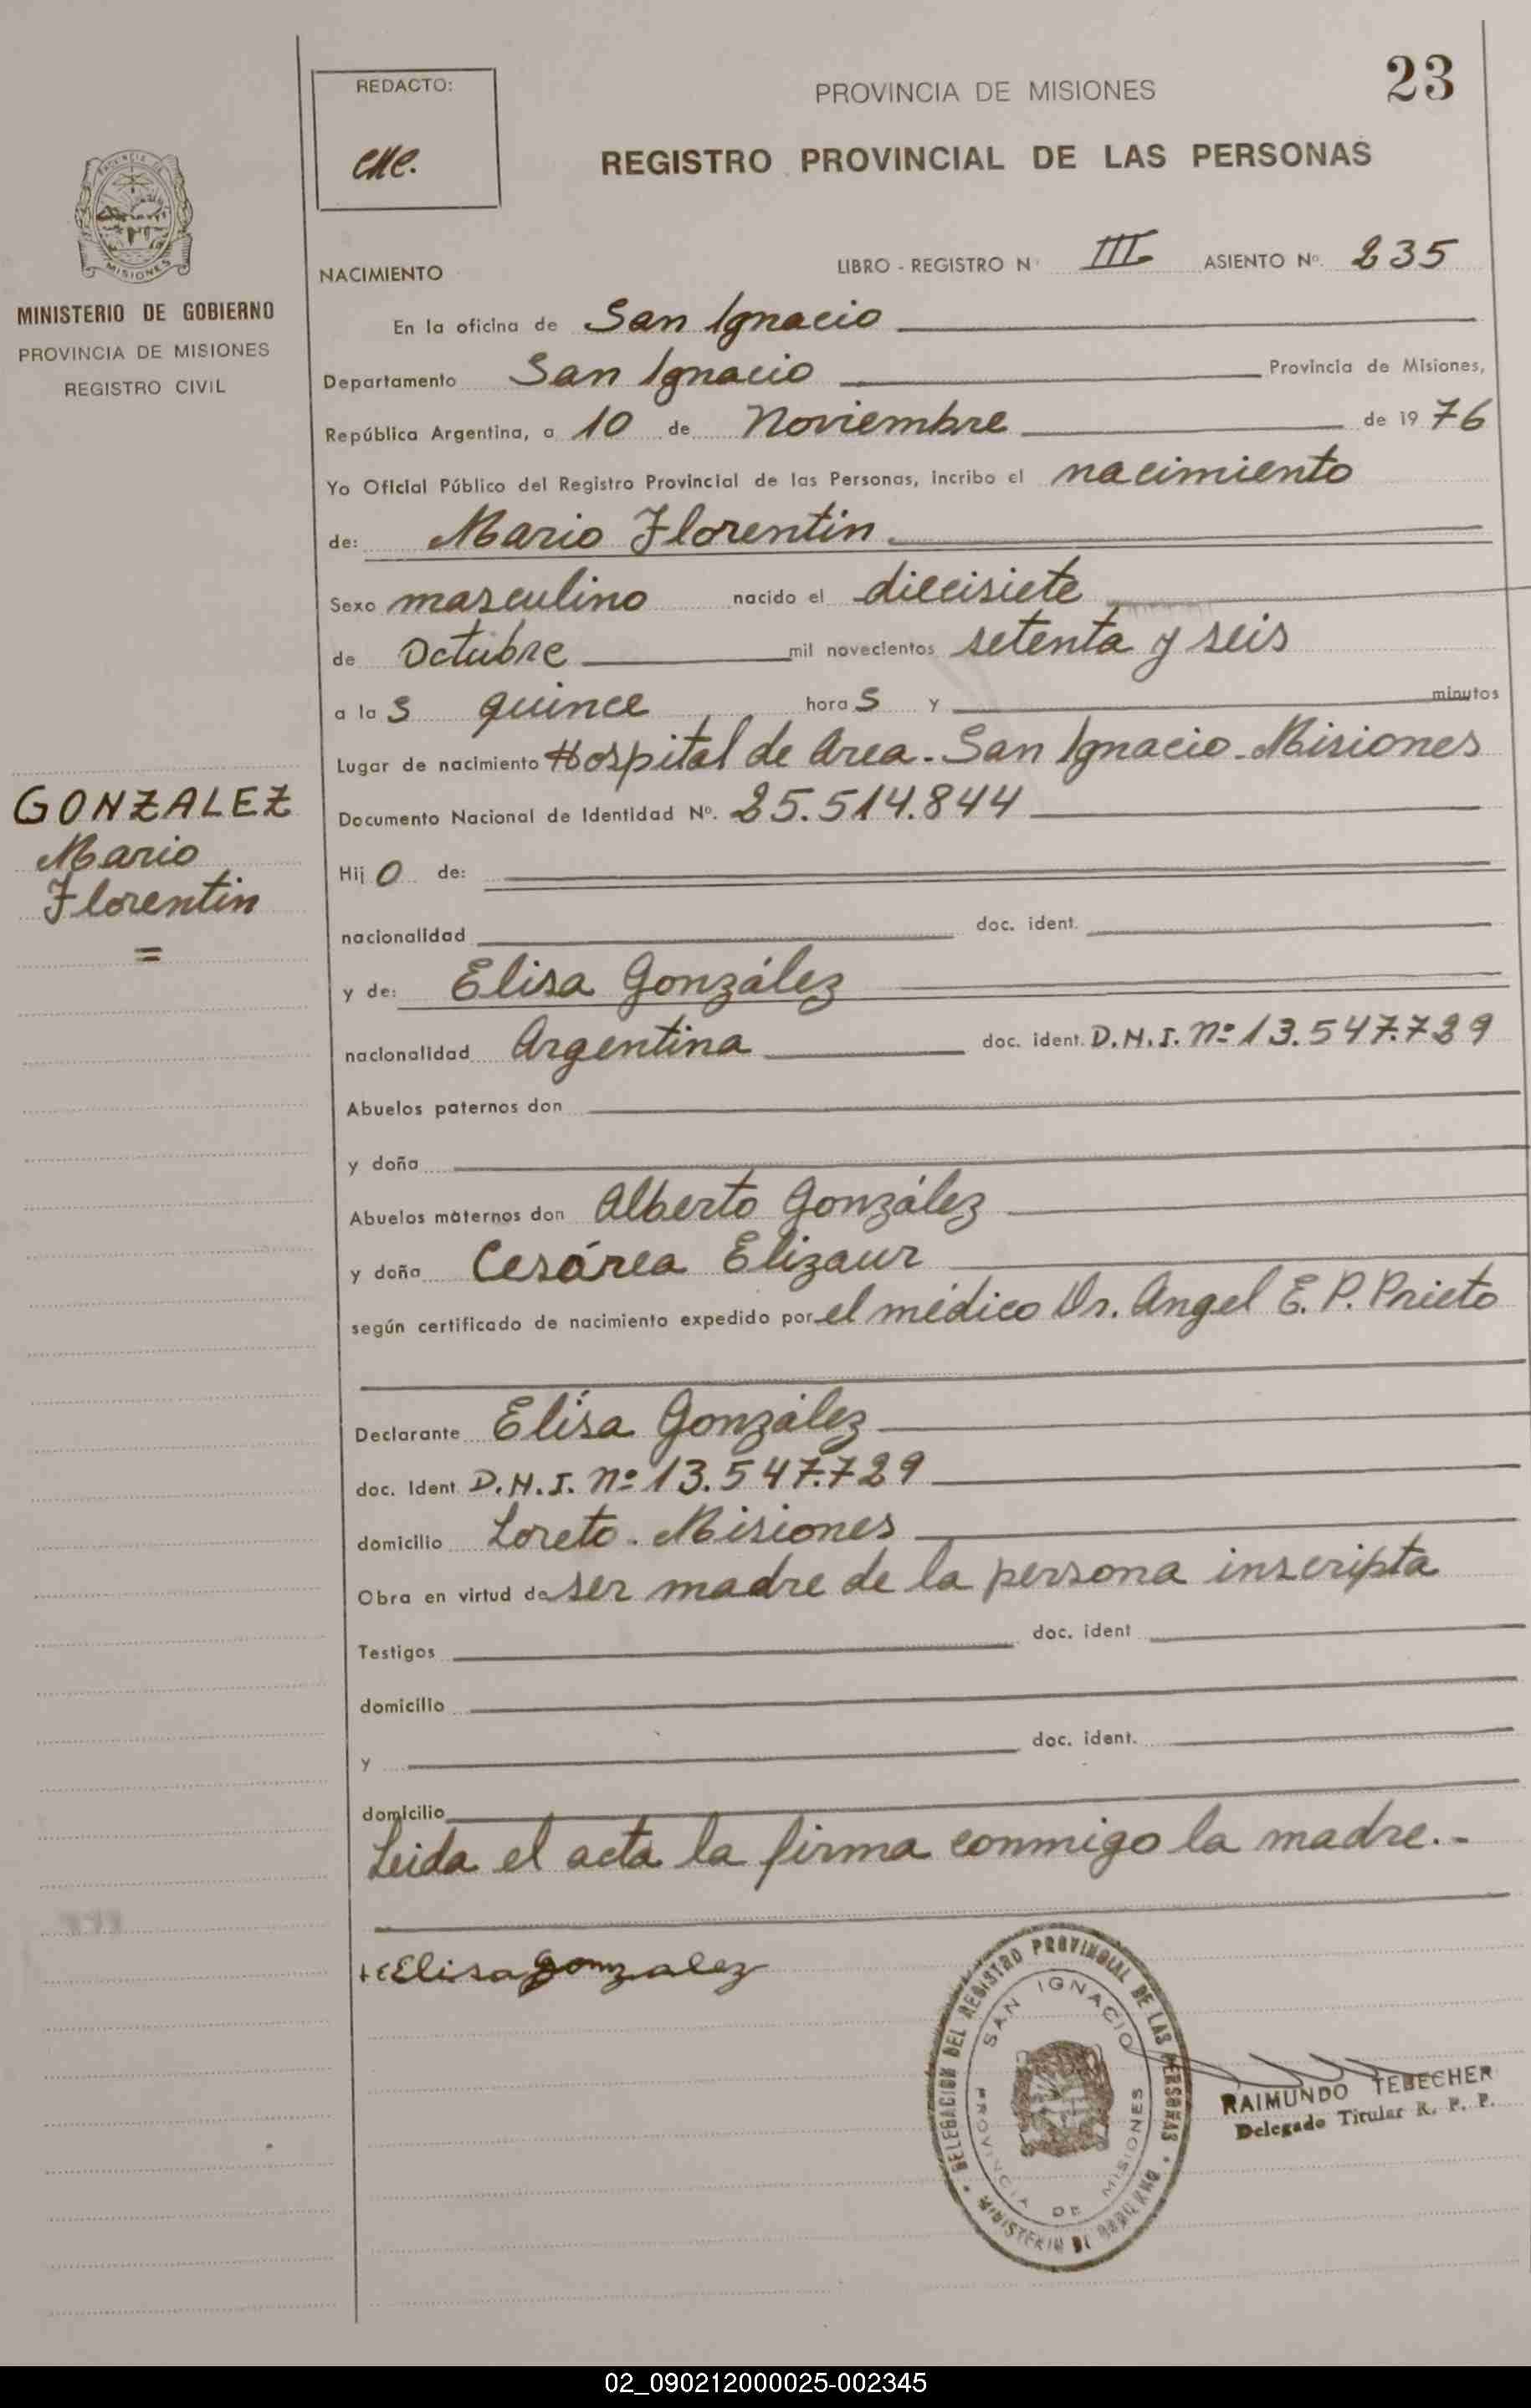 23
REDACTO:
PROVINCIA DE MISIONES
REGISTRO PROVINCIAL DE LAS PERSONAS
MISIONES
MINISTERIO DE GOBIERNO
PROVINCIA DE MISIONES
REGISTRO CIVIL
NACIMIENTO
LIBRO - REGISTRO Nº III ASIENTO Nº. 235
En la oficina de San Ignacio
Departamento San Ignacio Provincia de Misiones,
República Argentina, a 10 de Noviembre de 1976
Yo Oficial Público del Registro Provincial de las Personas, incribo el nacimiento
de: Mario Florentin
Sexo masculino nacido el diecisiete
de Octubre mil novecientos setenta y seis
a las quince horas y minutos
Lugar de nacimiento Hospital de Area. San Ignacio. Misiones
GONZALEZ
Mario
Florentin
=
Documento Nacional de Identidad Nº. 25.514.844
Hijo de:
nacionalidad doc. ident.
y de: Elisa González
nacionalidad Argentina doc. ident. D.N.I. Nº 13.547.729
Abuelos paternos don
y doña
Abuelos maternos don Alberto González
y doña Cesárea Elizaur
según certificado de nacimiento expedido por el médico Dr. Angel E. P. Prieto
Declarante Elisa González
doc. Ident D.N.I. Nº 13.547.729
domicilio Loreto. Misiones
Obra en virtud de ser madre de la persona inscripta
Testigos doc. ident
domicilio
y doc. ident.
domicilio
Leida el acta la firma conmigo la madre.-
Elisa gonzalez
DELEGACION DEL REGISTRO PROVINCIAL DE LAS PERSONAS
SAN IGNACIO
PROVINCIA DE MISIONES
MINISTERIO DE GOBIERNO
RAIMUNDO TEBECHER
Delegado Titular R. P. P.
02_090212000025-002345